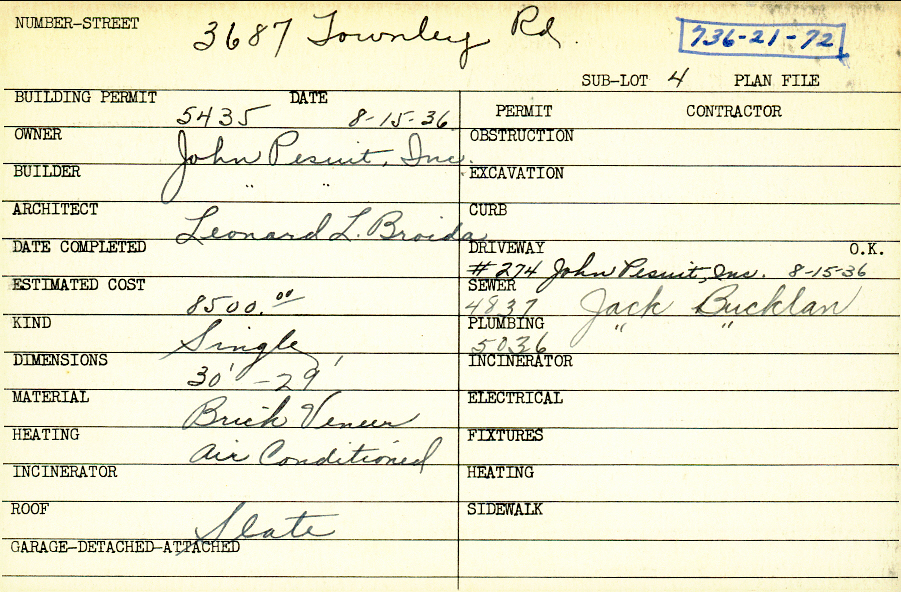 NUMBER-STREET 3687 Townley Rd. 736-21-72
SUB-LOT 4 PLAN FILE
BUILDING PERMIT 5435 DATE 8-15-36
OWNER John Pesuit, Inc.
BUILDER " "
ARCHITECT Leonard L. Broida
DATE COMPLETED
ESTIMATED COST 8500.00
KIND Single
DIMENSIONS 30' - 29'
MATERIAL Brick Veneer
HEATING Air Conditioned
INCINERATOR
ROOF Slate
GARAGE-DETACHED-ATTACHED
PERMIT CONTRACTOR
OBSTRUCTION
EXCAVATION
CURB
DRIVEWAY O.K.
#274 John Pesuit, Inc. 8-15-36
SEWER
4837 Jack Bucklan
PLUMBING " "
5036
INCINERATOR
ELECTRICAL
FIXTURES
HEATING
SIDEWALK